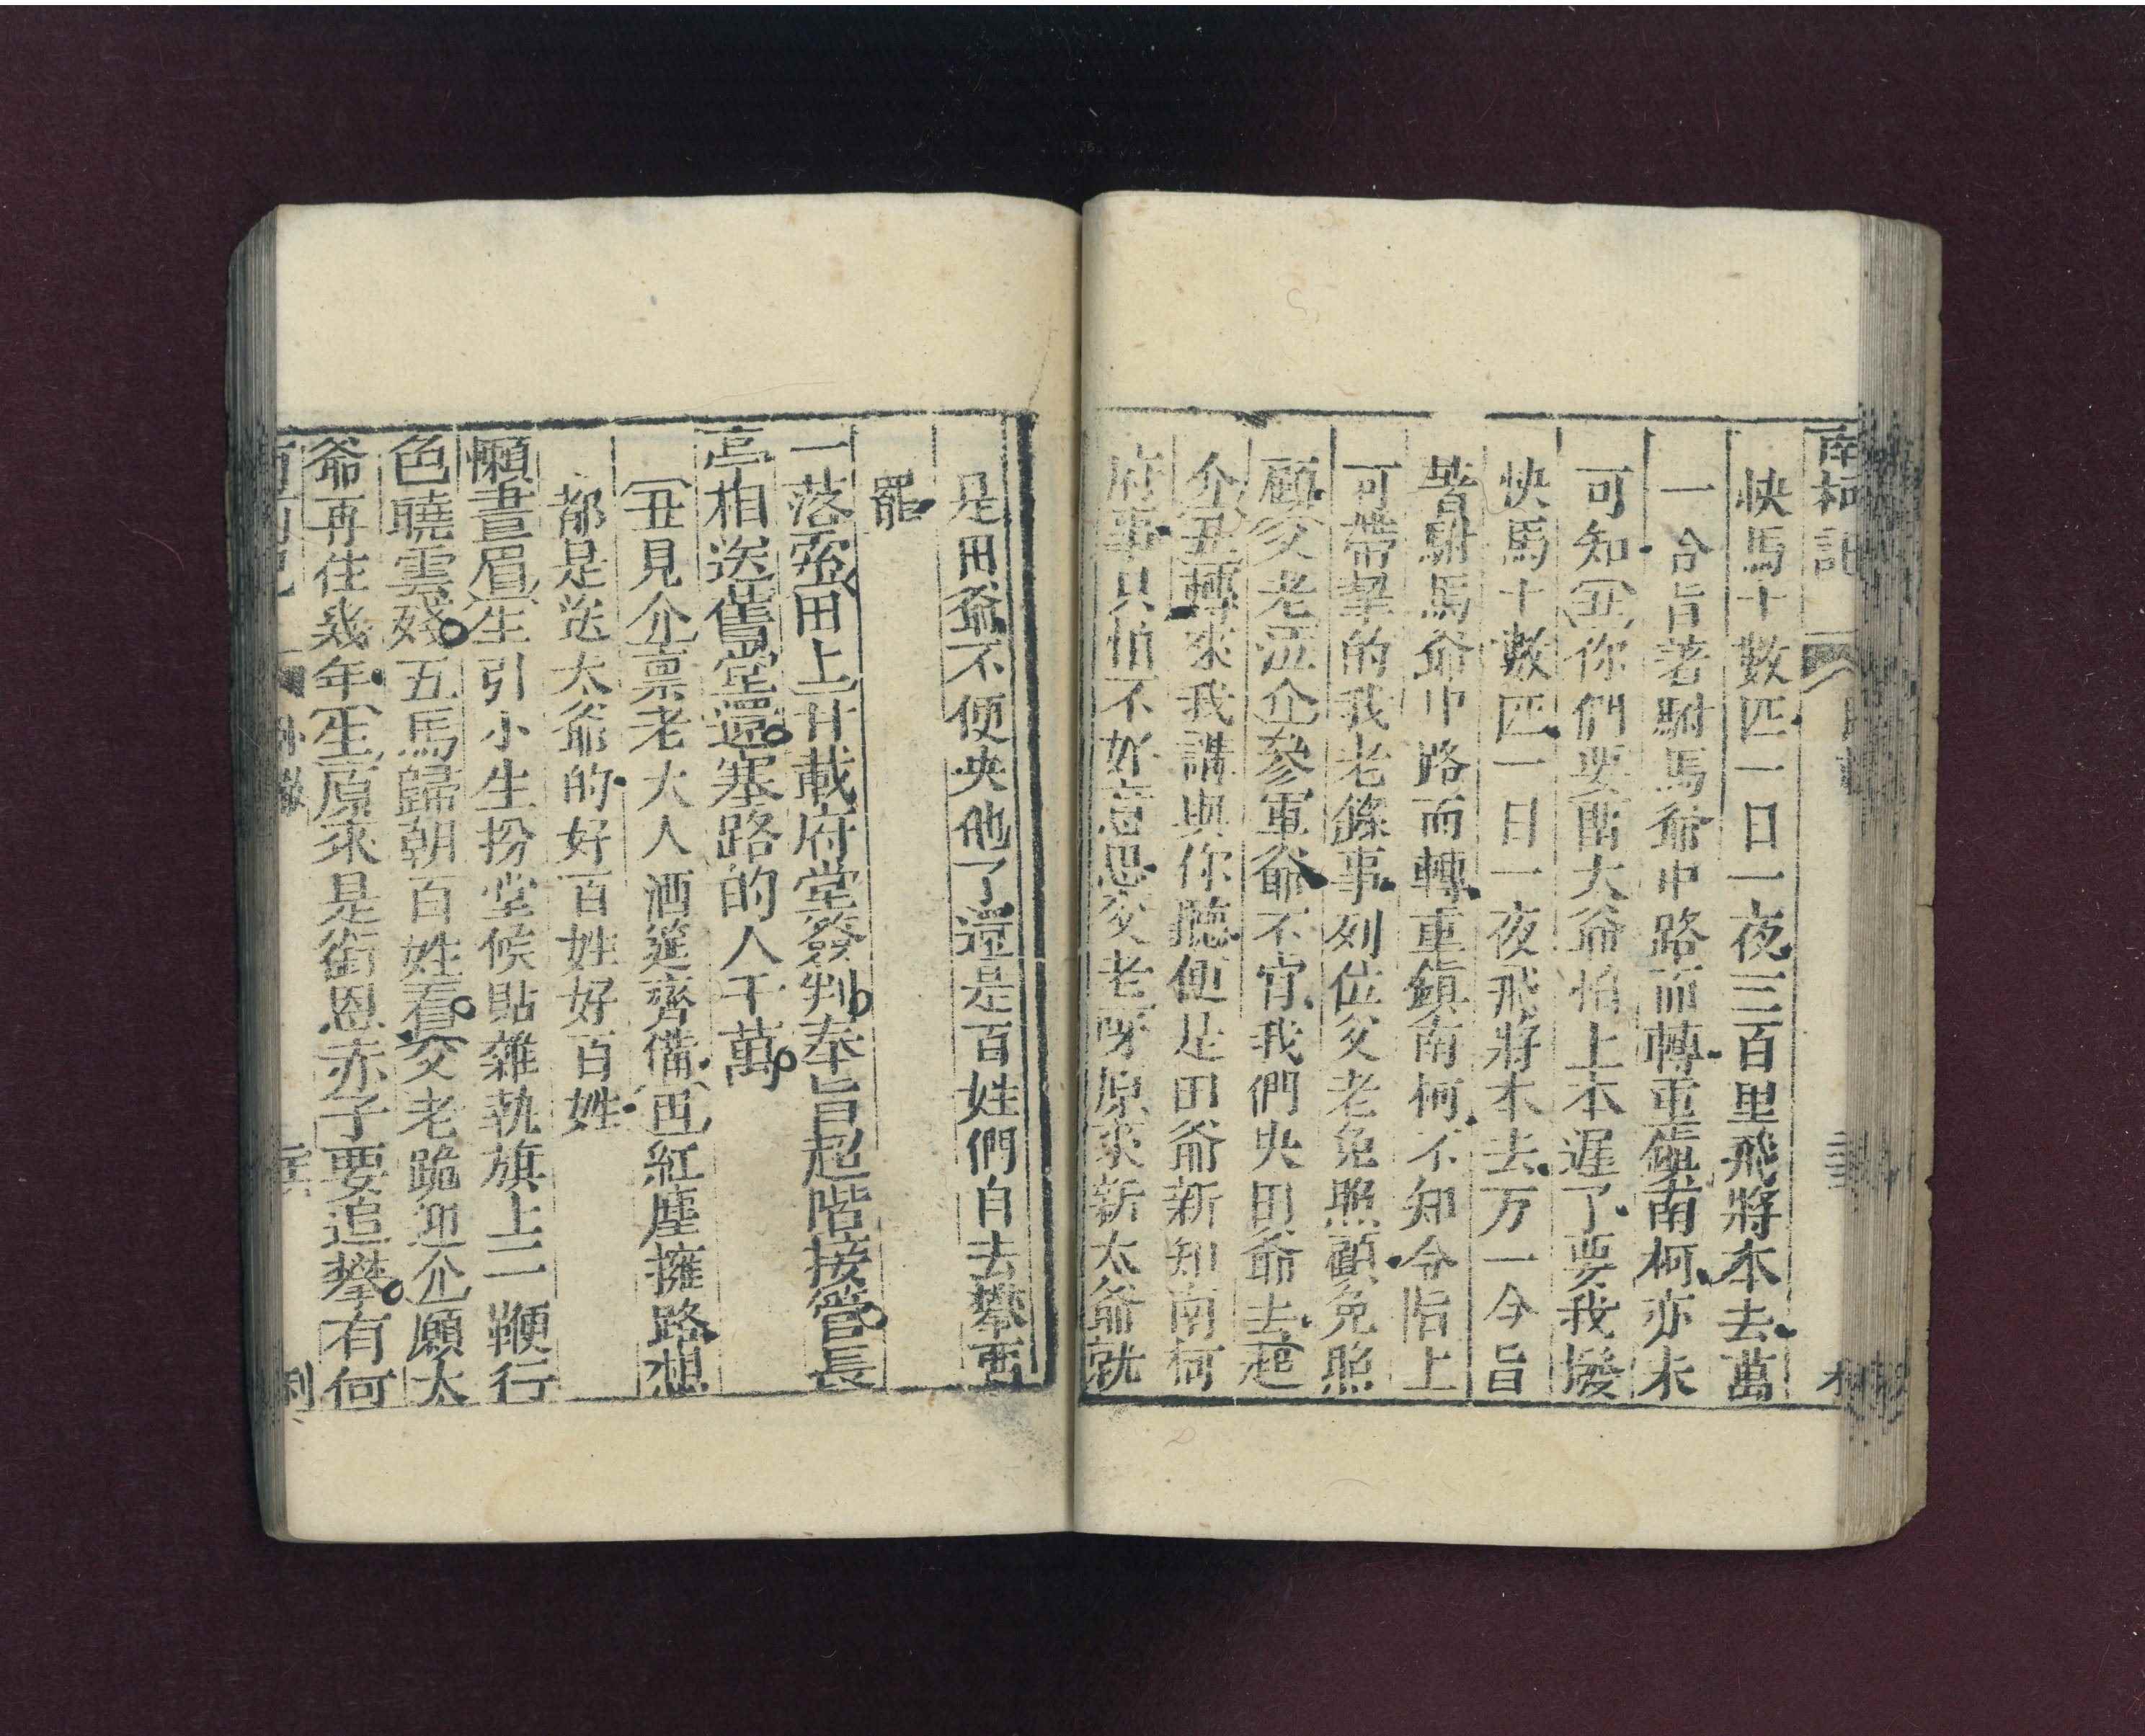 南柯記 臥轍
快馬十數匹一日一夜三百里飛將本去萬
一令旨著駙馬爺中路而轉重鎮南柯亦未
可知(丑)你們要留大爺怕上本遲了要我撥
快馬十數匹一日一夜飛將本去万一令旨
着駙馬爺中路而轉重鎮南柯不知令旨上
可帶挈的我老餘事列位父老免照顧免照
顧(父老泣介)參軍爺不肯我們央田爺去(起
介丑)轉來我講與你聽便是田爺新知南柯
府事只怕不好意思(父老)呀原來新太爺就
是田爺不便央他了還是百姓們自去攀西
罷
一落索(田上)廿載府堂簽判奉旨超階接管長
亭相送舊堂還塞路的人千萬
(丑見介)稟老大人酒筵齊備(田)紅塵擁路想
都是送太爺的好百姓好百姓
懶畫眉(生引小生扮堂候貼雜執旗上)一鞭行
色曉雲殘五馬歸朝百姓看(父老跪迎介)願太
爺再住幾年(生)原來是銜恩赤子要追攀有何